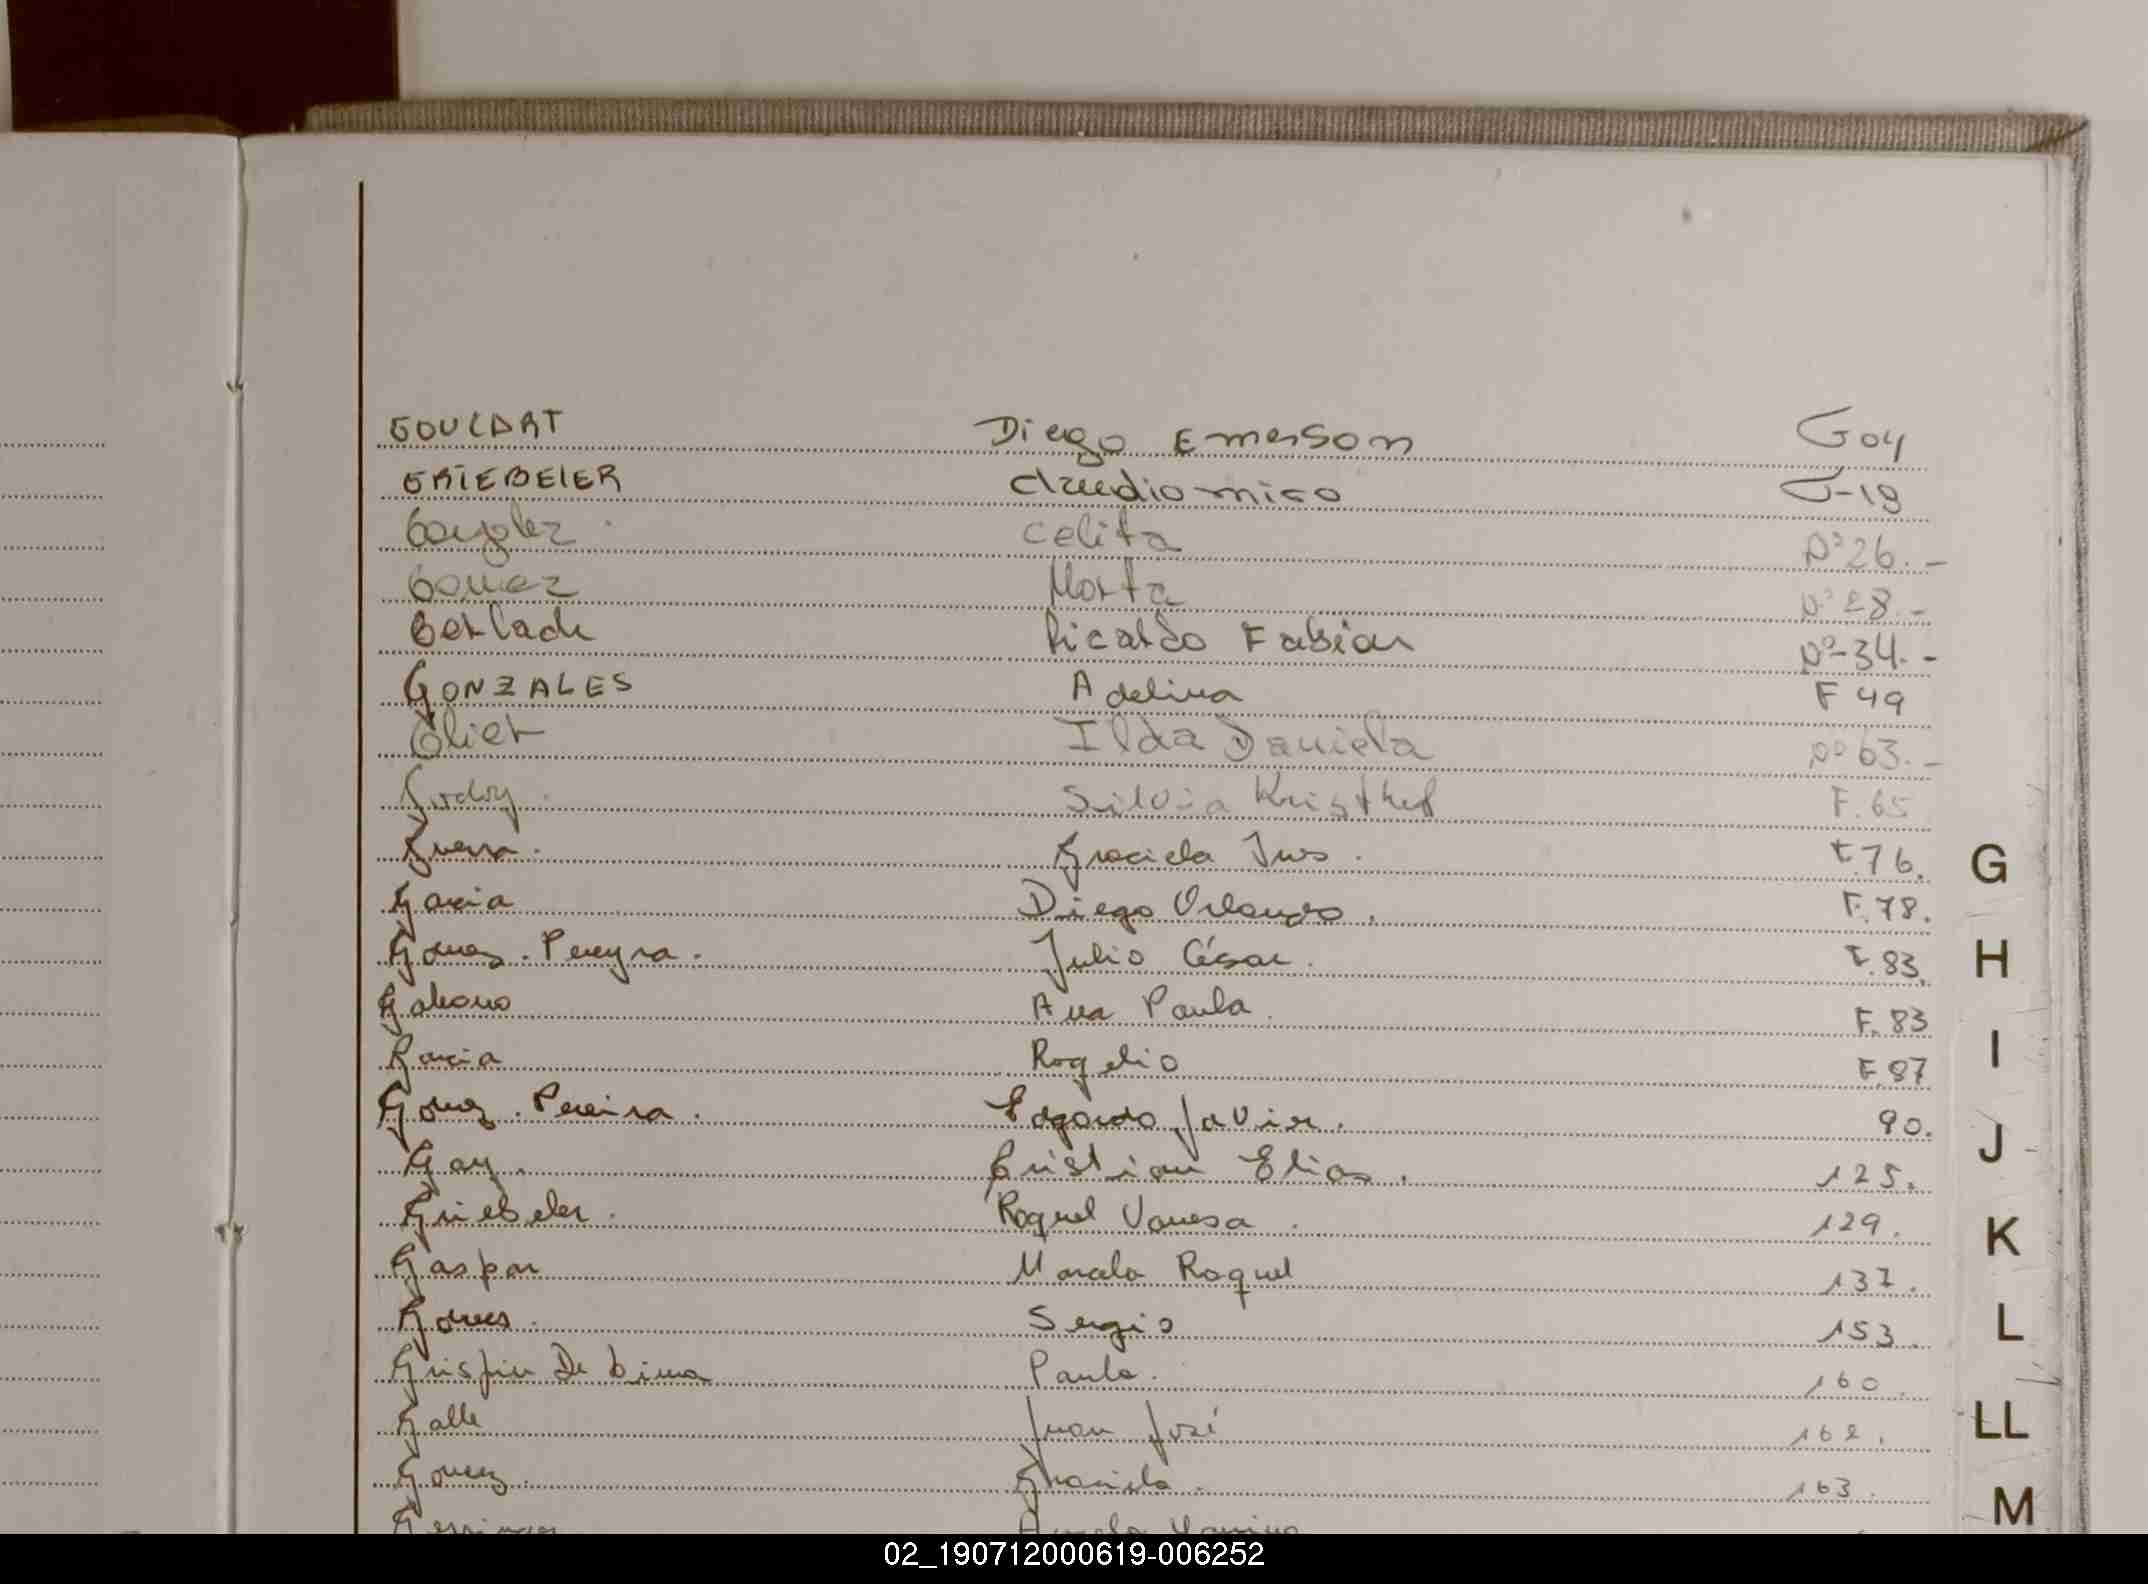 GOULART Diego Emerson G04
GRIEBELER Claudiomiro G-19
Gonzalez Celita Nº 26.-
Gomez Marta Nº 28.-
Gerlach Ricardo Fabian Nº-34.-
GONZALES Adelina F 49
Glier Ilda Daniela Nº 63.-
Godoy. Silvia F. 65
Guerra. Graciela Ines. F.76.
Garcia Diego Orlando. F.78.
Gomez. Pereyra. Julio César. F.83.
Galeano Ana Paula. F.83
Garcia Rogelio F.87
Gomez. Pereira. Edgardo Javier. 90.
Gay. Cristian Elias. 125.
Griebeler. Raquel Vanesa. 129.
Gaspar Marcela Raquel 137.
Gomes. Sergio 153.
Grispin De Lima Paula. 160.
Galle Juan José 162.
Gomez. Graciela. 163.
G
H
I
J
K
L
LL
M
02_190712000619-006252